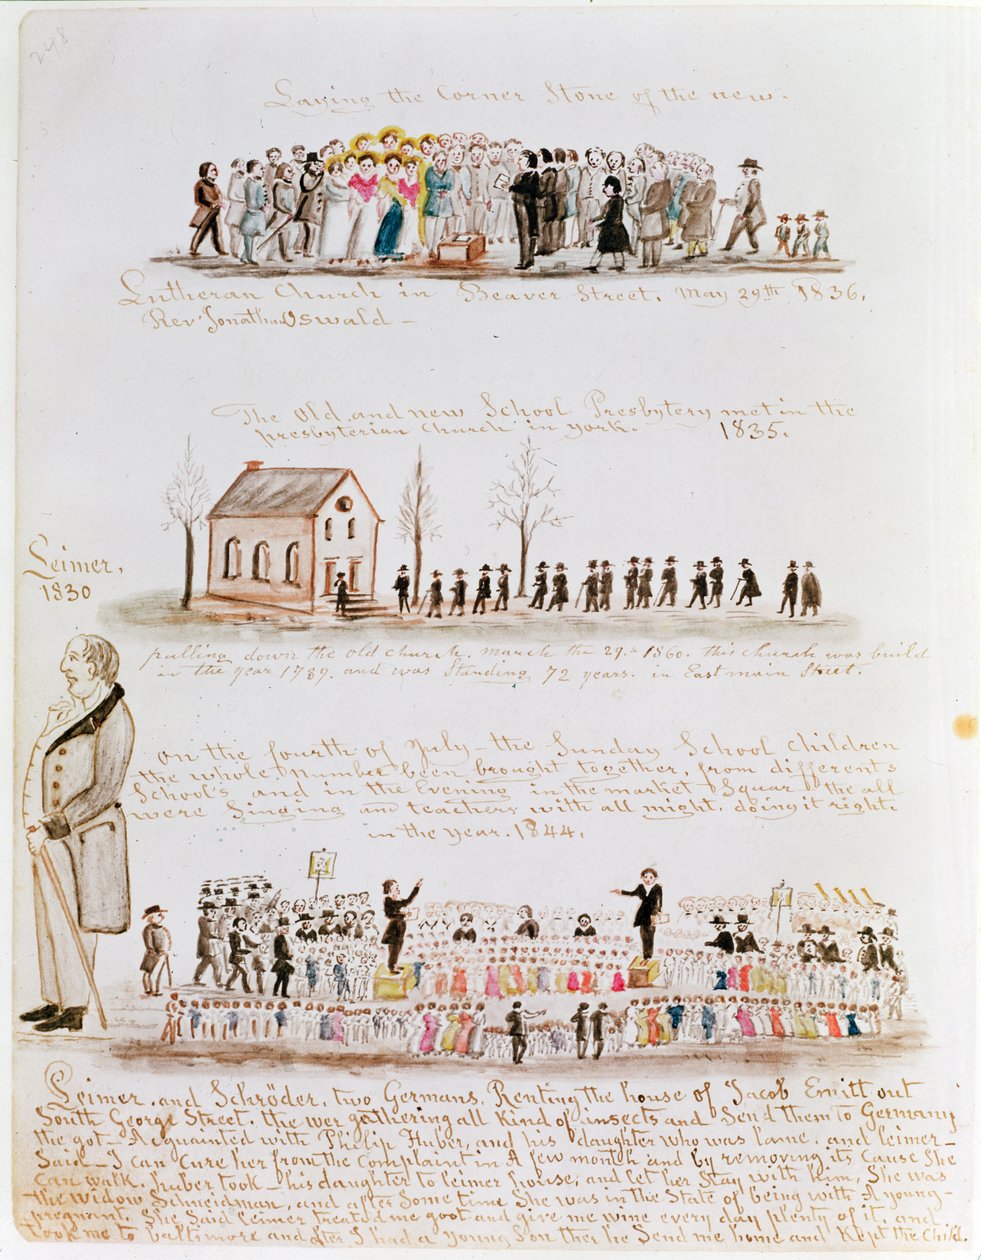 248
Laying the Corner Stone of the new.
Lutheran Church in Beaver Street. May 29th 1836.
Rev' Jonathan Oswald —
The Old, and new School Presbytery met in the
presbyterian Church in York. 1835.
Leimer.
1830
pulling down the old church. march the 29th 1860. this church was build
in the year 1789. and was Standing 72 years. in East main Street.
on the fourth of July — the Sunday School Children
the whole number been brought together, from differents
School's and in the Evening in the market Squar the all
were Singing and teachers with all might. doing it right.
in the year. 1844.
Leimer. and Schröder, two Germans, Renting the house of Jacob Emitt out
South George Street. the wer gathering all Kind of insects and Send them to Germany
the got Acquainted with Philip Huber, and his daughter who was lame, and leimer —
Said — I can Cure her from the Complaint in A few month and by removing its Cause She
Can walk, huber took — his daughter to leimer house, and let her Stay with him, She was
the widow Schneidman, and after Some time She was in the State of being with A young —
pregnant. She Said leimer treated me goot and give me wine every day plenty of it, and
took me to baltimore and after I had a Young Son ther he Send me home and Kept the Child.